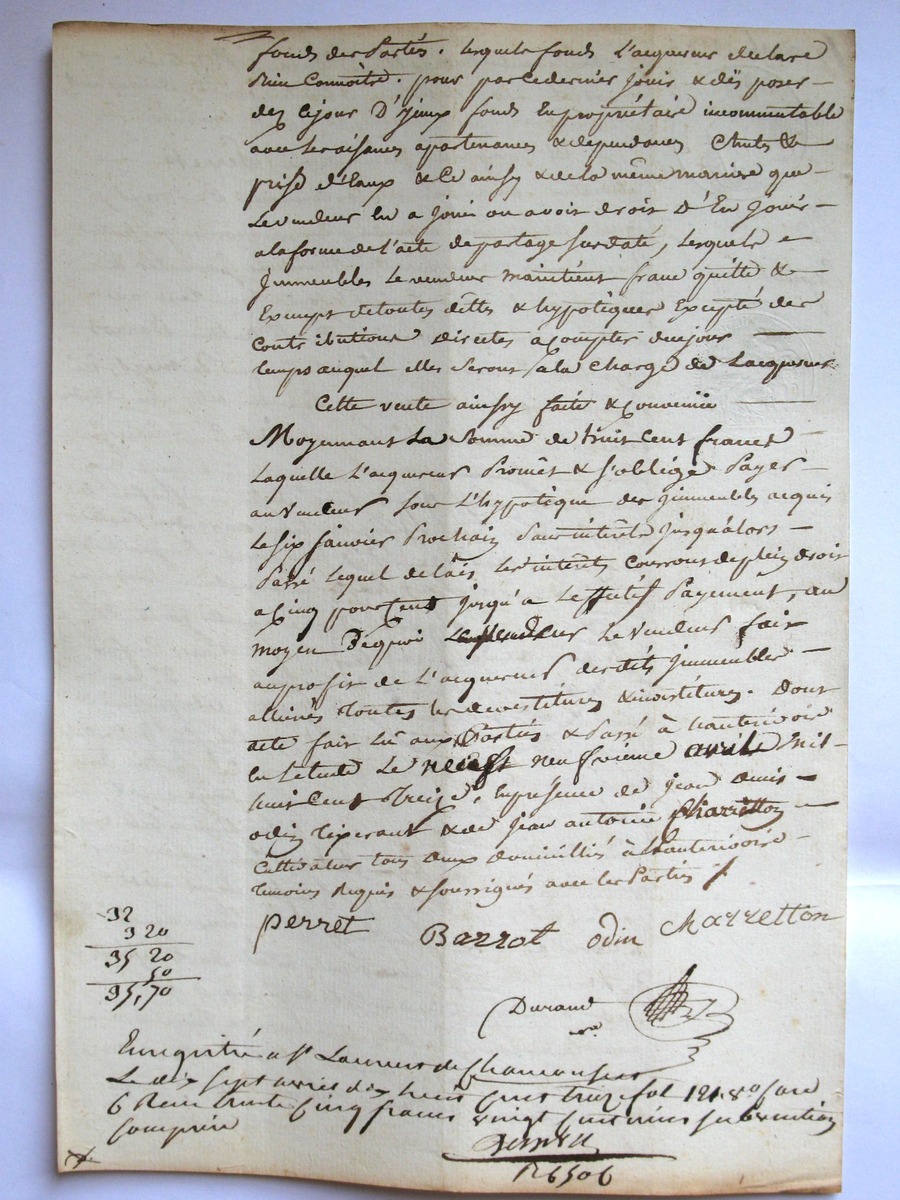 fonds des Partés. Lesquels fonds L'acquereur declare
Bien Connoitre. pour par Ce dernier jouir & disposer
dez Cejour D'hui fonds En propriétaire incommutable
avec Les aisances apartenances & dependances Chutes &
prise d'Eaux & Ce ainsy & de la même maniere que
Le vendeur En a joüi ou avoit droit D'En jouir
a la forme de L'acte de partage susdaté, Lesquels
Immeubles Le vendeur maintient franc quitte &
Exempt de toutes dêttes & hypotèques Excepté des
Contributions directes a Compter du jour
temps auquel elles Seront a la charge de Lacquereur
Cette vente ainsy faite & Convenüe
Moyennant La Somme de huit Cent francs
Laquelle L'acquereur Promêt & s'oblige Payer
au Vendeur sous L'hypotèque des immeubles acquis
Le six janvier Prochain Sans intérêts jusqu'alors
Passé Lequel delais Les intérêts Courront de plein droit
a Cinq pour Cent jusqu'a Leffectif Payement, au
moyen Dequoi Le Vendeur fait
au profit de L'acquereur desdits Immeubles
alliénés toutes les devestitures & investitures. Dont
acte fait Lû aux Parties & Passé à hauterivoire
En Letude Le neufvieme avril Mil
huit Cent Treize. En présence de jean denis
odin Tisserant & de jean antoine Charretton
Cultivateur tous deux domicilliés à hauterivoire
temoins Requis & soussignés avec les Parties
perret Barrot odin charretton
32
3 20
35 20
50
35,70
Durand
nre
Enregistré a St Laurent de Chamousset
Le dix sept avril dix huit Cent treize fol 121 Vo Case
6 Recu trente Cinq francs vingt Centimes subvention
Comprise
R 6506